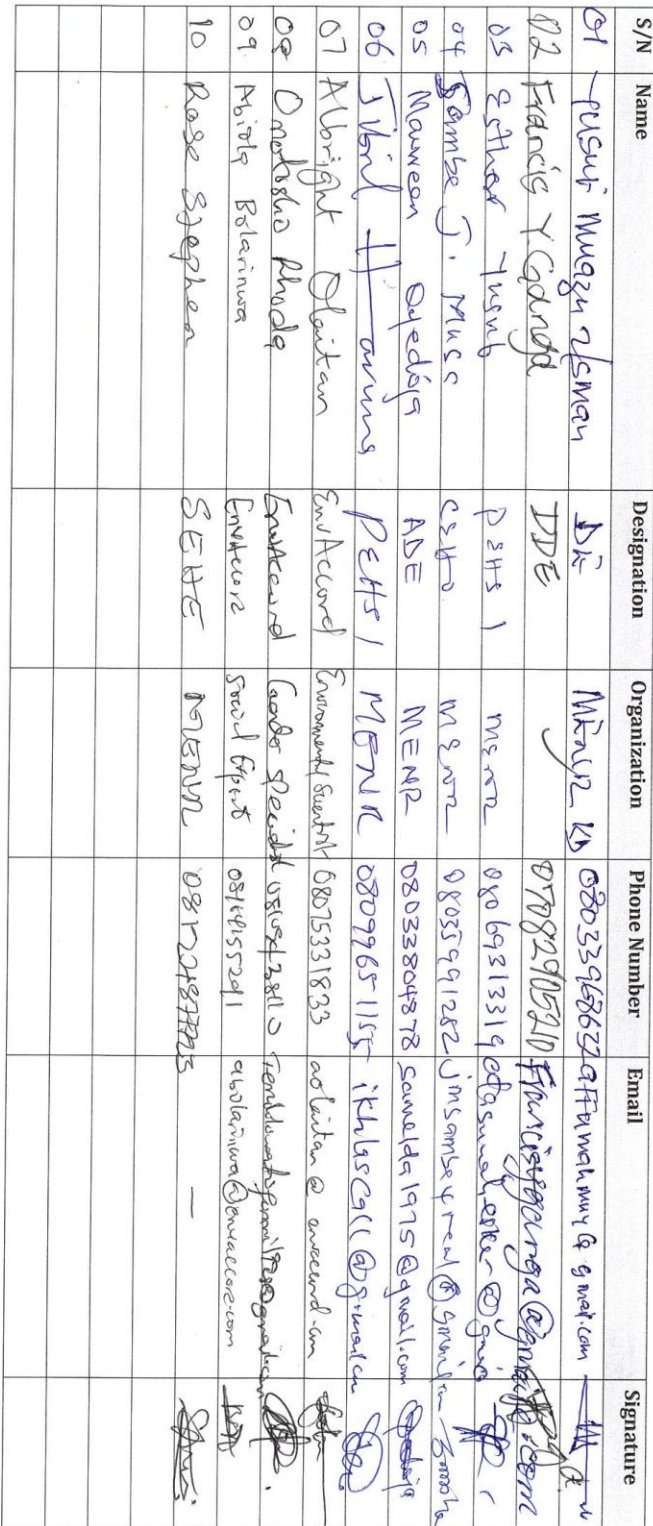 S/N Name Designation Organization Phone Number Email Signature
01 Yusuf Muazu Usman DE MENR KD 08033968632 @gmail.com
02 Francis Y Gdnga DDE 07082905210 Francisygdnga@gmail.com
03 Esther Yusuf PEHS 1 MENR 08069313319
04 Sambe J. Musa CEHO MENR 08035991282
05 Maureen Oyedoja ADE MENR 08033804878 samelda1975@gmail.com
06 Jibril Haruna PEHS 1 MENR 08099651155
07 Albright Olaitan EnvAccord Environmental Scientist 08075331833 aolaitan@envaccord.com
08 Omotosho Rhoda EnvAccord Gender Specialist
09 Abiola Bolarinwa EnvAccord Social Expert 08164155291 abolarinwa@envaccord.com
10 Rose Stephen SEHE MENR —